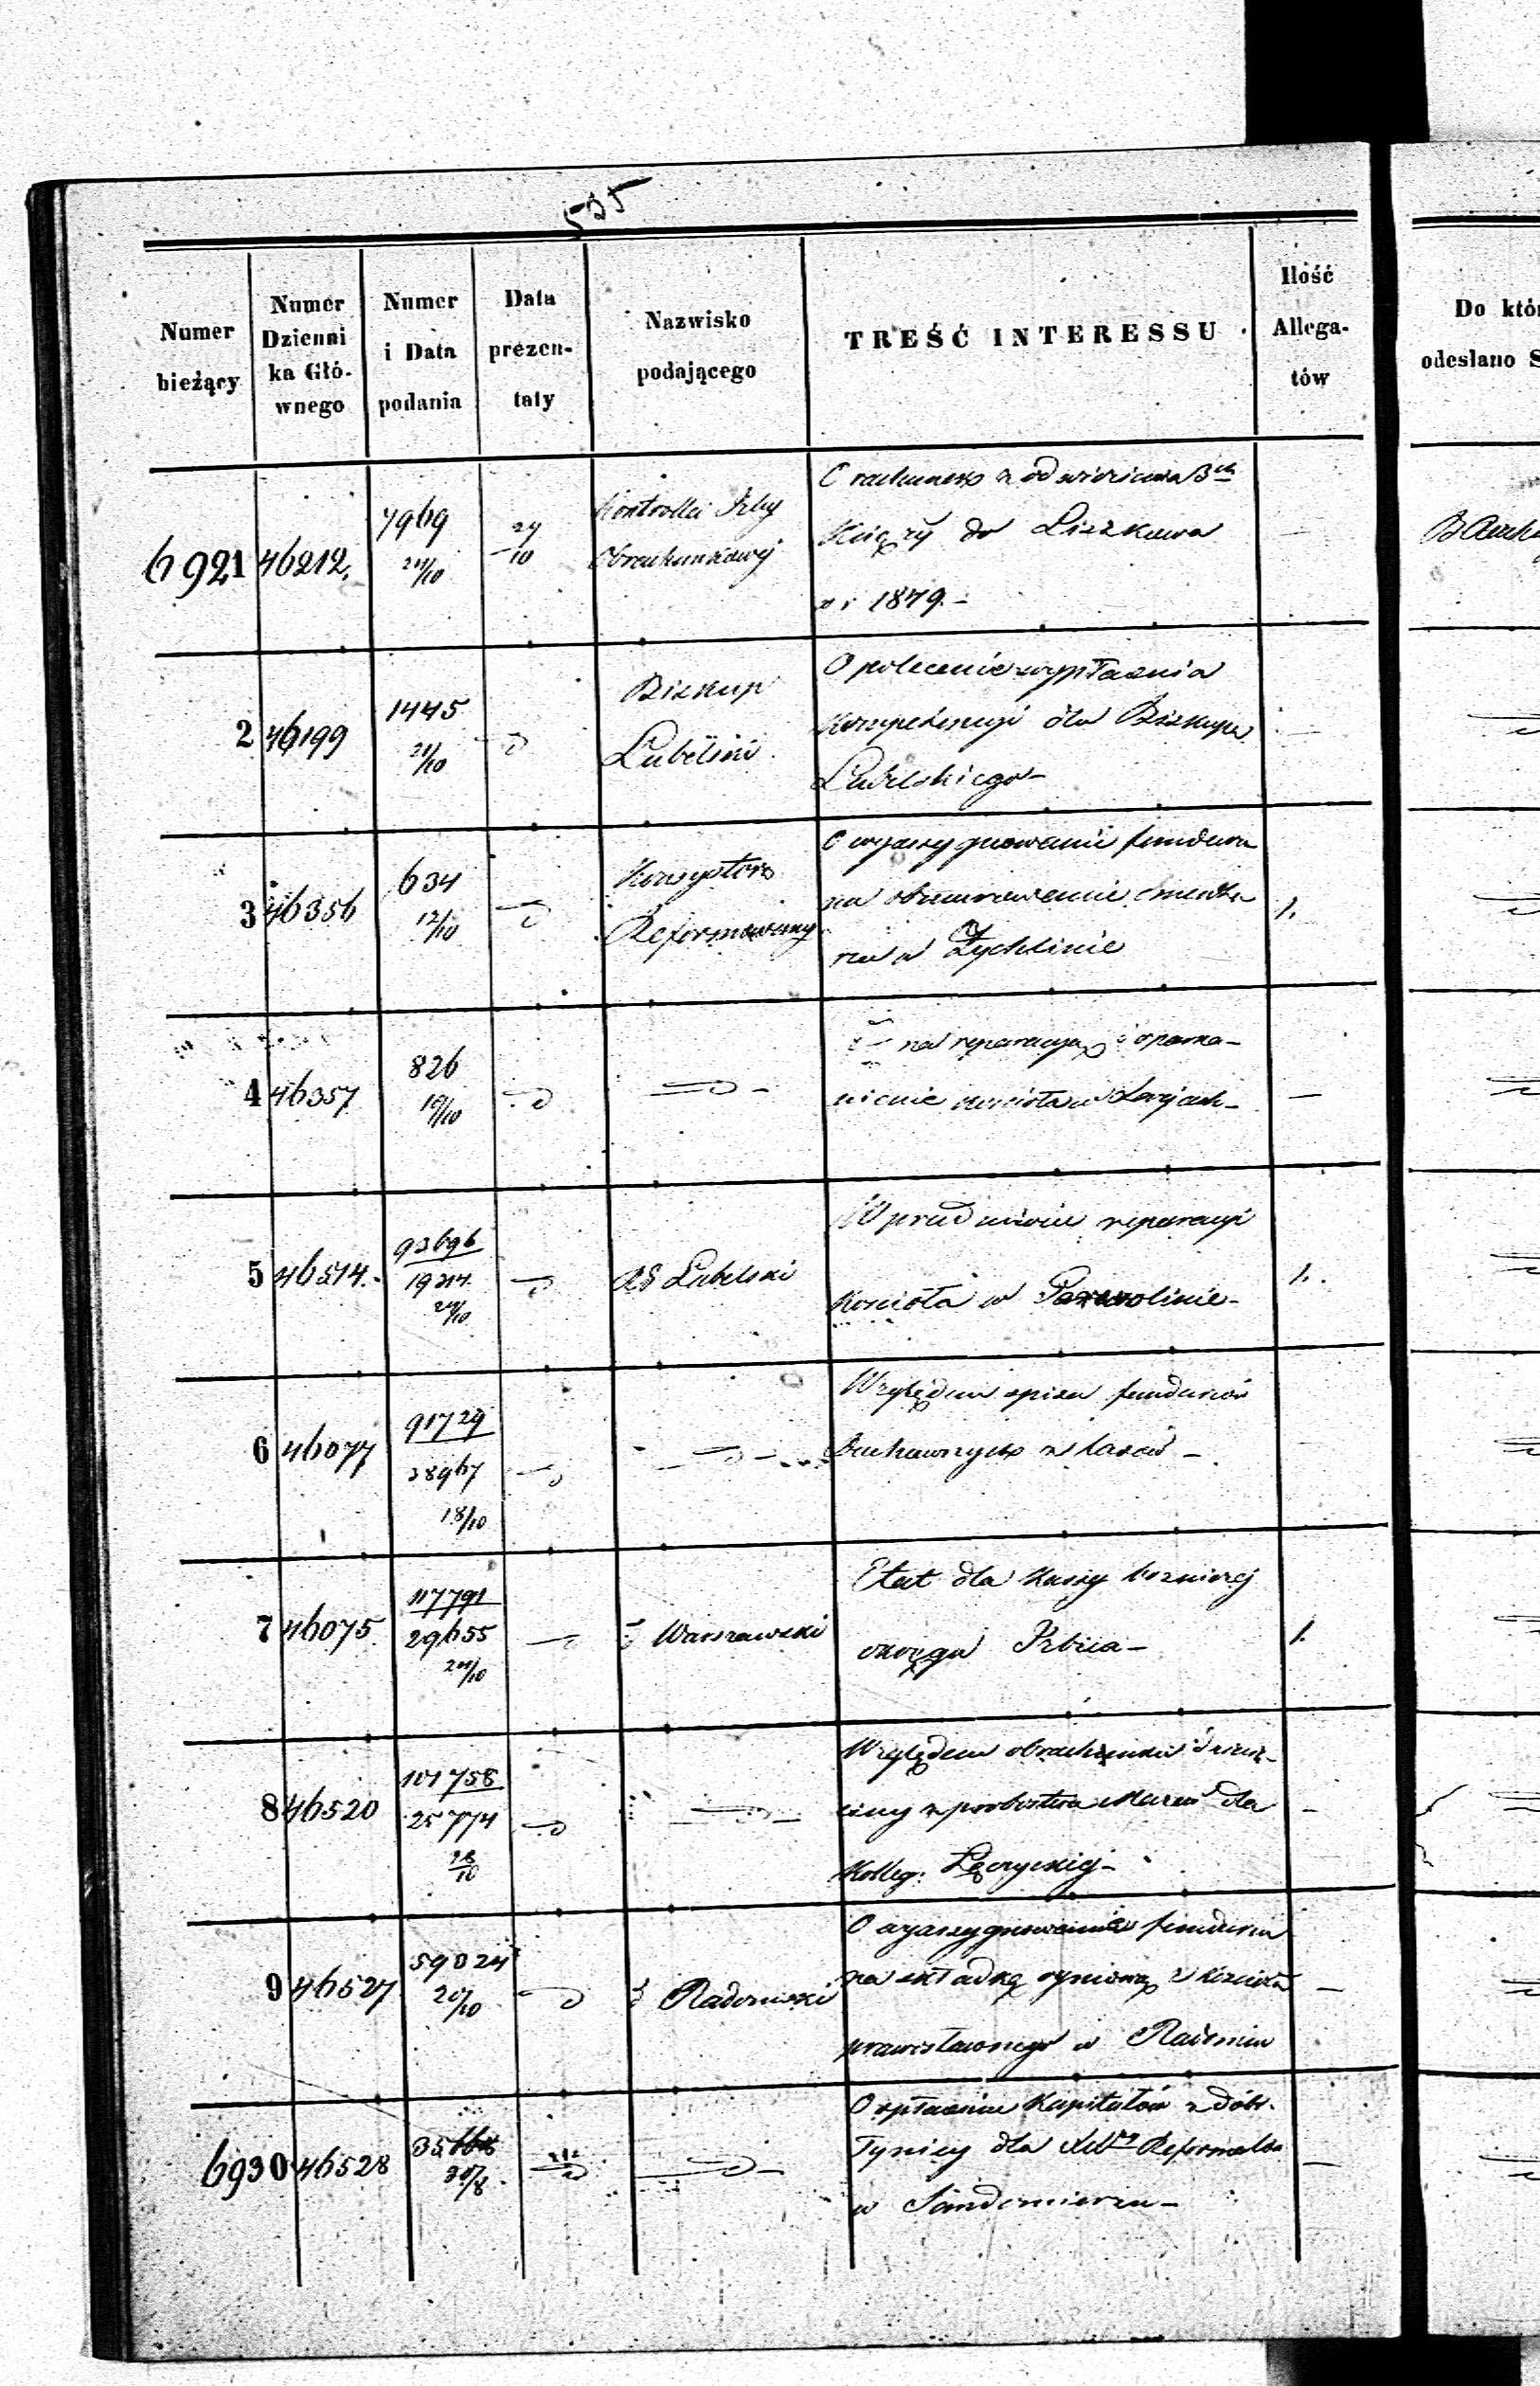 535
Numer bieżący
Numer Dzienni ka Głó- wnego
Numer i Data podania
Data prezen- taty
Nazwisko podającego
TREŚĆ INTERESSU
Ilość Allega- tów
Do któ
odesłano S
6921 46212. 7969 21/10 24/10
Kontrolla Izby
Obrachunkowej
O rachunek z odwiezienia 3ch
Księży do Liszkowa
w r 1879.-
2 46199 1445 21/10
Biskup
Lubelski
O polecenie wypłacenia
Kompetencyi dla Biskupa
Lubelskiego-
3 46356 634 12/10
Konsystorz
Reformowany
O wyassygnowanie funduszu
na obmurowanie cmenta-
rza w Żychlinie
1.
4 46357 826 10/10
na reparacyą i oparka-
nienie kościoła w Serejach-
5 46514. 93696 19214. 24/10
RG Lubelski
W przedmiocie reparacyi
Kościoła w Parczolinie-
1.
6 46077 91729 38967 18/10
Względem spisu funduszów
Duchownych
7 46075 117791 29655 24/10
Warszawski
Etat dla Kassy bożniczej
okręgu Izbica-
1.
8 46520 101758 25774 28/10
Względem obrachunku dziesię-
ciny z probostwa Mazew dla
Kolleg: Łęczyckiej-
9 46527 59024 20/10
Radomski
O wyassygnowanie funduszu
na składkę ogniową z kościoła
prawosławnego w Radomiu
6930 46528 30/8
O spłacenie Kapitałów z dóbr
Tynicy dla XXów Reformatów
w Sandomierzu-